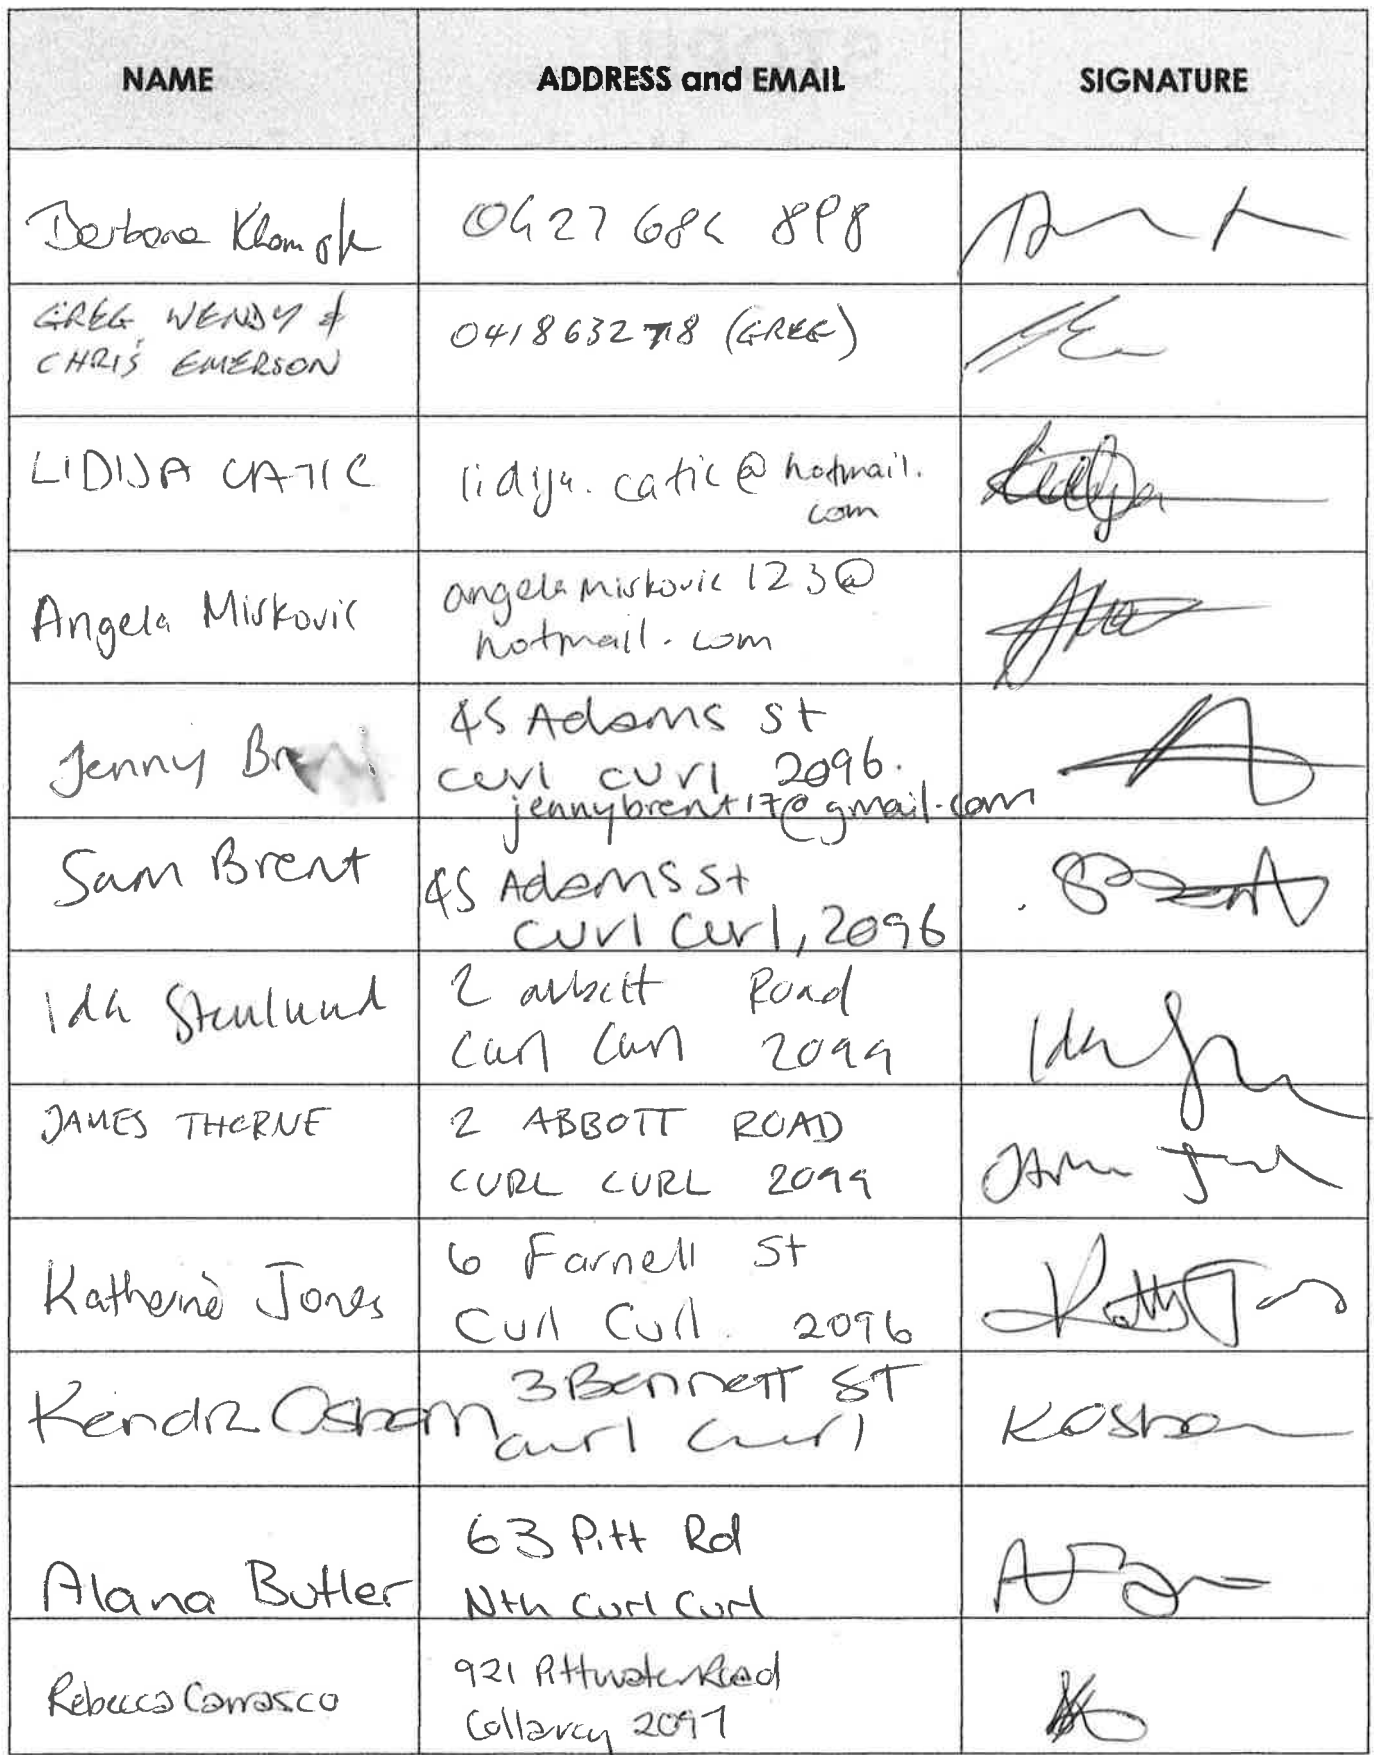 NAME ADDRESS and EMAIL SIGNATURE
Barbara 0427 684 898
GREG WENDY &
CHRIS EMERSON
0418 632 718 (GREG)
LIDIJA CATIC
lidija.catic@hotmail.
com
Angela Miskovic
angelamiskovic123@
hotmail.com
Jenny
45 Adams St
curl curl 2096.
jennybrent17@gmail.com
Sam Brent
45 Adams St
Curl Curl, 2096
Ida Stenlund
2 abbott Road
Curl Curl 2099
JAMES THORNE
2 ABBOTT ROAD
CURL CURL 2099
Katherine Jones
6 Farnell St
Curl Curl. 2096
Kendra Osborn
3 Bennett ST
curl curl
KOsborn
Alana Butler
63 Pitt Rd
Nth Curl Curl
Rebecca Carrasco
921 Pittwater Road
Collaroy 2097